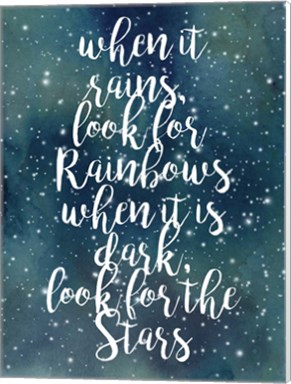 when it
rains,
look for
Rainbows
when it is
dark,
look for the
Stars